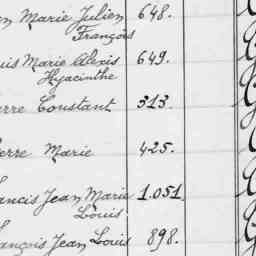 n Marie Julien 648.
François
uis Marie Alexis 649.
Hyacinthe
erre Constant 313.
ierre Marie 425.
rancis Jean Marie 1.051.
Louis
rançois Jean Louis 898.